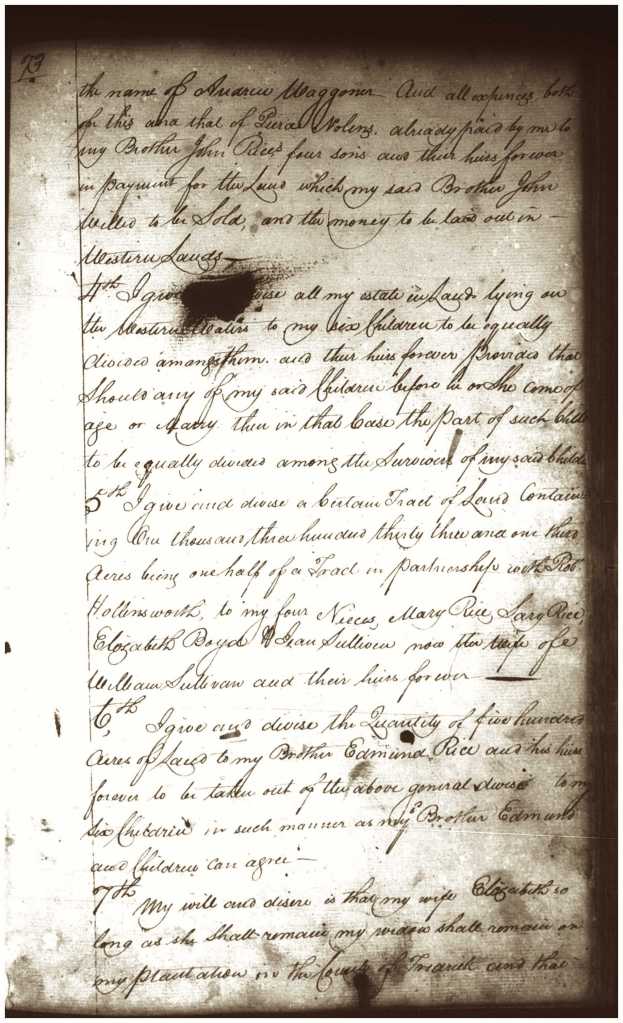 73
the name of Andrew Waggoner And all expences both
on this and that of Peirce Nolens. already paid by me to
my Brother John Rices four sons and their heirs forever
in payment for the Land which my said Brother John
Willed to be Sold, and the money to be laid out in —
Western Lands —
4th I give devise all my estate in Lands lying on
the Western Waters to my six Children to be equally
divided amongst them. and their heirs forever Provided that
Should any of my said Children before he or She come of
age or Marry then in that Case the Part of such Child
to be equally divided among the Survivors of my said Childn
5th I give and devise a Certain Tract of Land Contain
ing One thousand three hundred thirty three and one third
Acres being one half of a Tract in partnership with Rob.
Hollinsworth, to my four Nieces, Mary Rice, Sary Rice,
Elizabeth Boyd & Jean Sulliven now the wife of
William Sullivan and their heirs forever —
6th, I give and divise the Quantity of five hundred
Acres of Land to my Brother Edmund Rice and his heirs
forever to be taken out of the above general divise to my
Six Children in such manner as my Brother Edmund
and Children can agree —
7th My will and desire is that my wife Elizabeth so
long as she Shall remain my widow shall remain on
my plantation in the County of Frederick and that